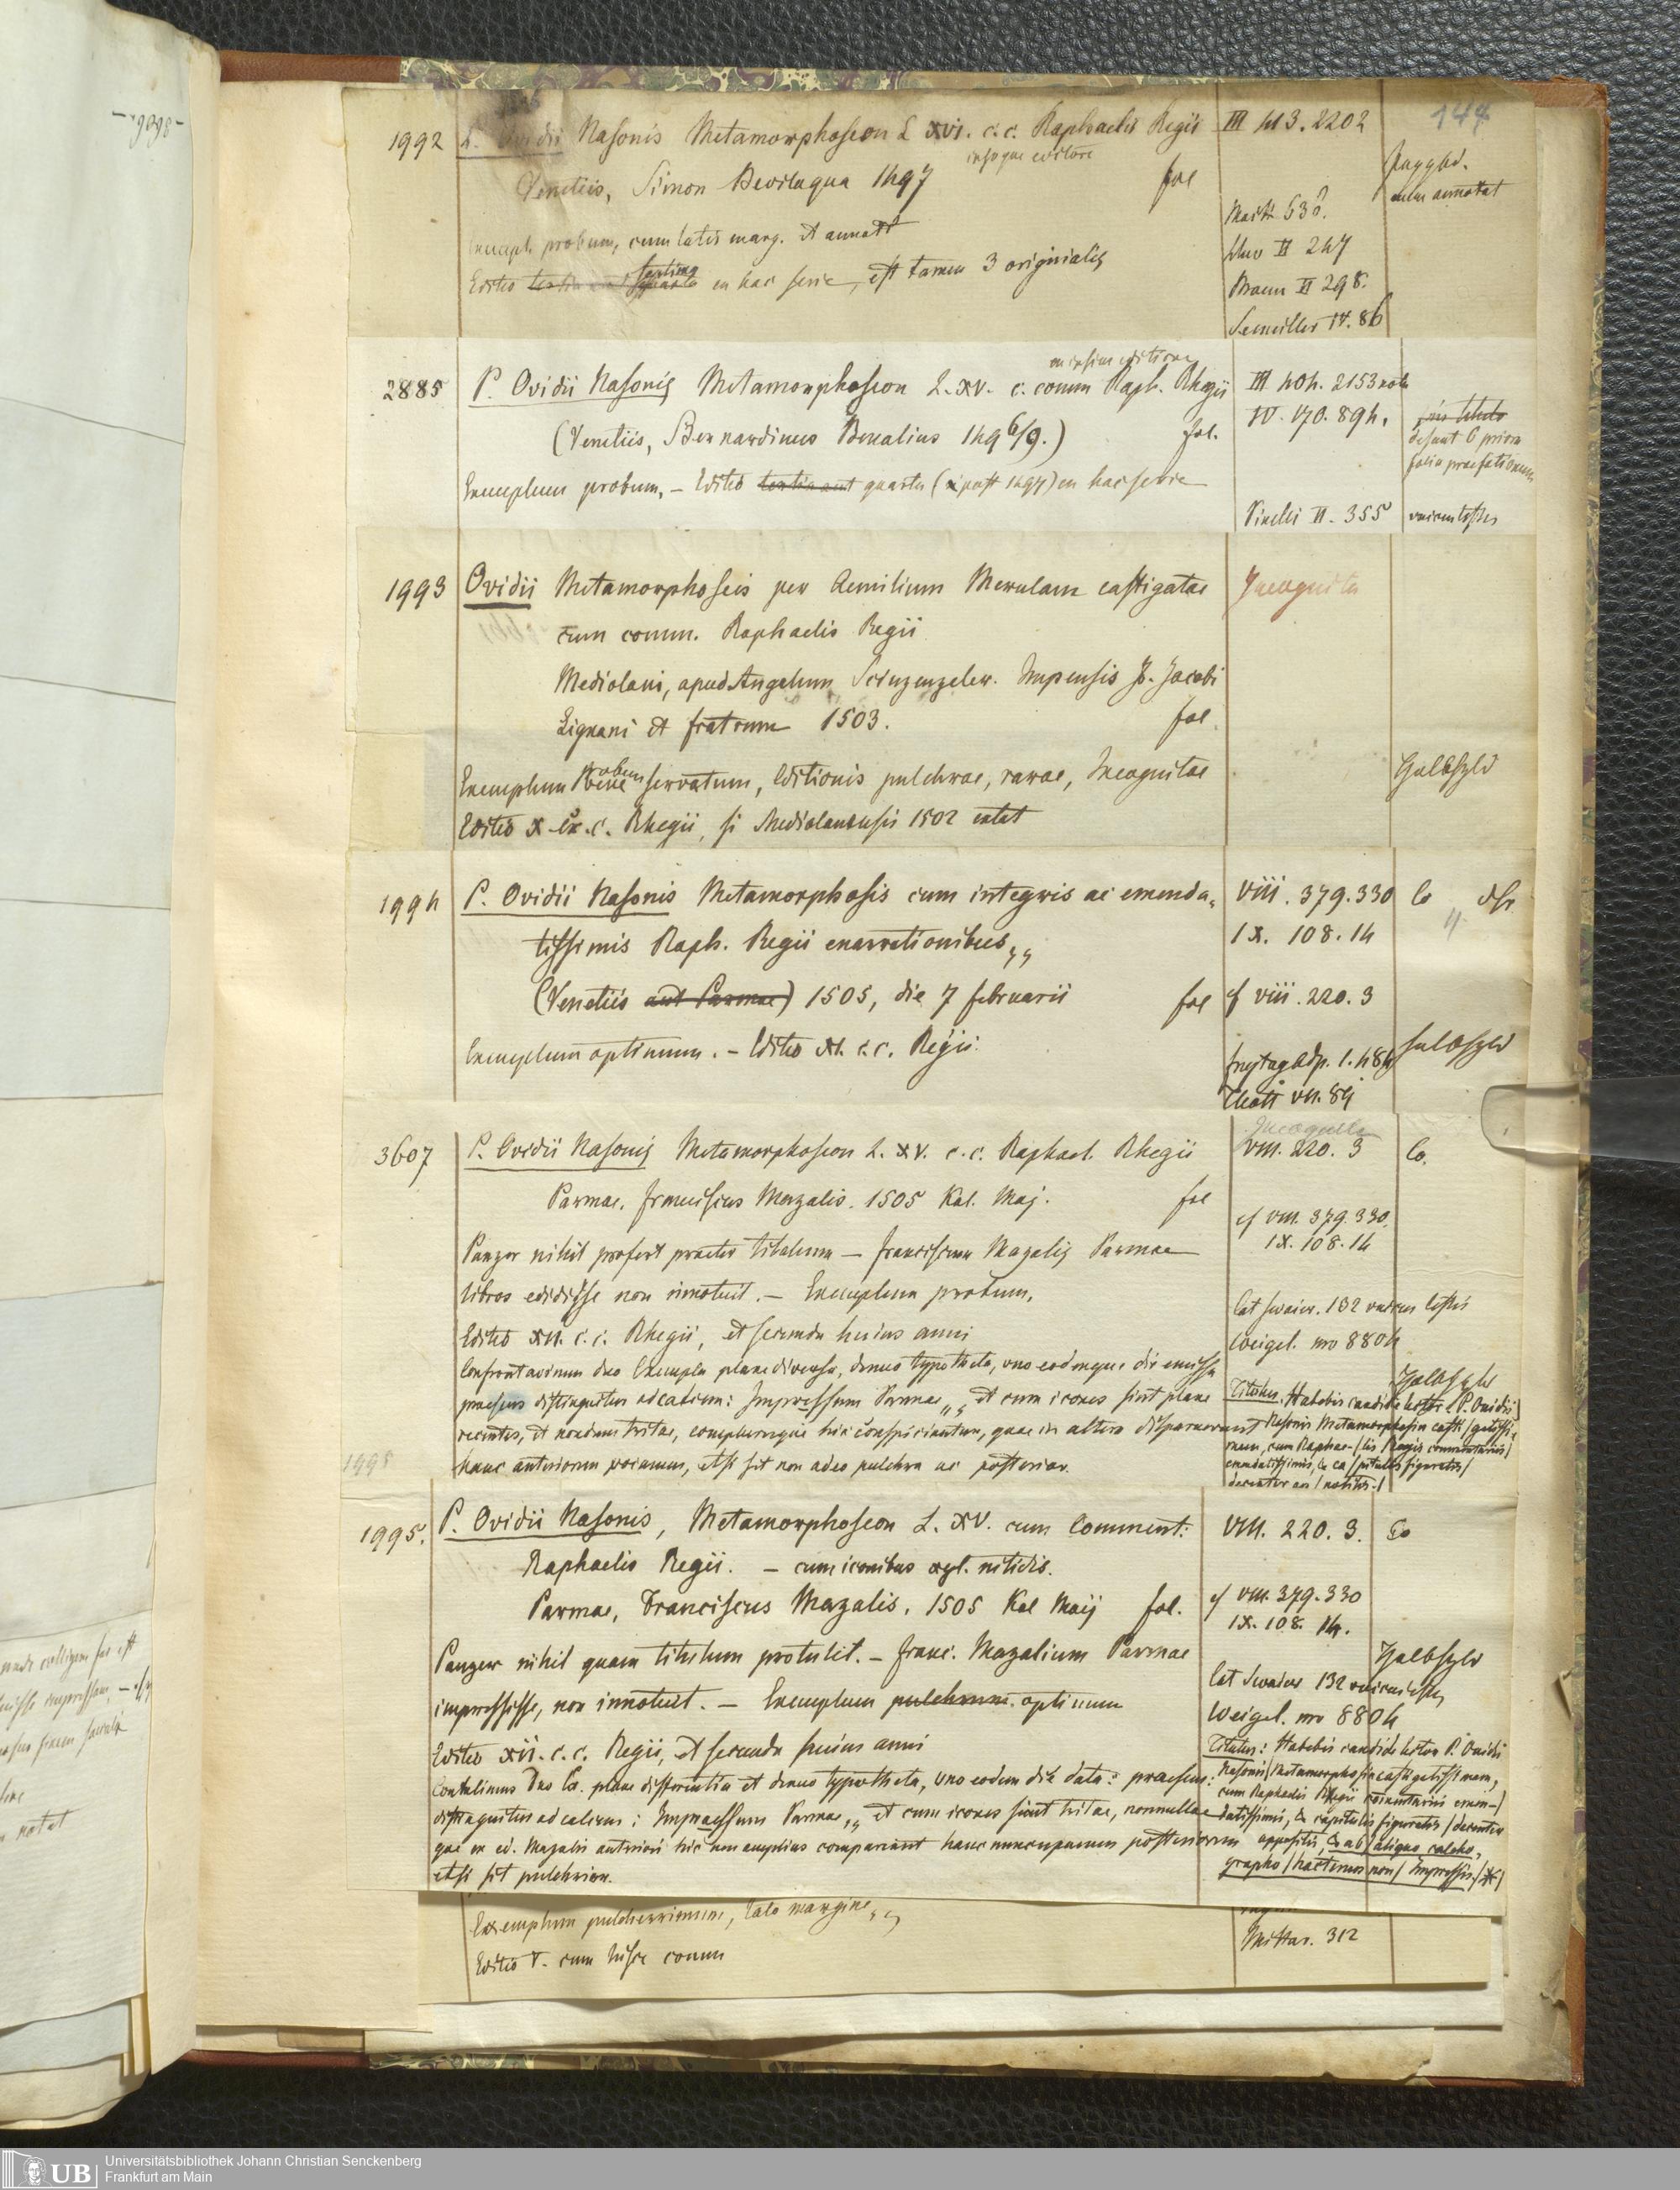 144
1992 Nasonis Metamorphoseon L xvi. c.c. Raphaelis Regii III 413. 2202
ipsoque editore
Venetiis, Simon Bevilaqua 1497 fol
cum annotat
Maitt 638.
Exempl. probum, cum latis marg. et annott
II 247
Editio septima in hac serie, est tamen 3 originalis
Braun II 298.
Seemiller IV. 86
2885 P. Ovidii Nasonis Metamorphoseon L. xv. c. comm Raph. Rhegii III 404. 2153
IV. 170. 894.
(Venetiis, Bernardinus Benalius 1496/9.) fol.
desunt 6 priora
folia praefationum
Exemplum probum, – Editio quarta (post 1497) in hac serie
Pinelli II. 355 unicus testis
1993 Ovidii Metamorphoseis per Aemilium Merulam castigatae Incognita
cum comm. Raphaelis Regii
Mediolani, apud Angelum Scinzenzeler. Impensis Jo. Jacobi
Lignani et fratrum 1503. fol.
Exemplum probum servatum, Editionis pulchrae, rarae, Incognitae Halbfzbd
Editio x c. c. Rhegii, si Mediolanensis 1502 extat
1994 P. Ovidii Nasonis Metamorphosis cum integris ac emenda- VIII. 379. 330 Co
tissimis Raph. Regii enarrationibus,, IX. 108. 14
(Venetiis aut Parmae) 1505, die 7 februarii fol cf VIII. 220. 3
Exemplum optimum. – Editio XI. c.c. Regii. Freytag Adp. 1. 484 Halbfzbd
Thott VII. 89
Incognita
3607 P. Ovidii Nasonis Metamorphoseon L. xv. c.c. Raphael. Rhegii VIII. 220. 3 Co.
Parmae. Franciscus Mazalis. 1505 Kal. Maj. fol
cf VIII. 379. 330.
IX. 108. 14
Panzer nihil profert praeter titulum – Franciscum Mazalis Parmae
libros edidisse non innotuit. – Exemplum probum.
Cat Swaier. 132 unicus testis
Editio XII. c.c. Rhegii, et secunda huius anni
Weigel. nro 8804
Confrontavimus duo Exempla plane diversa, denuo typotheta, uno eodemque die emissa
Halbfzbd
praesens distinguitur ad calcem: Impressum Parmae,, et cum icones sint plane
recentes, et nondum tritae, compluresque hic conspiciantur, quae in altera disparuerunt
hanc anteriorem vocamus, etsi sit non adeo pulchra ac posterior.
Titulus. Habebis candide lector P. Ouidii
Nasonis Metamorphosin casti/gatissi-
mam, cum Raphae-/lis Regii commentariis/
emendatissimis, & ca/pitulis figuratis/
decenter ap/positis./
1995
1995. P. Ovidii Nasonis, Metamorphoseon L. XV. cum Comment: VIII. 220. 3. Co
Raphaelis Regii. – cum iconibus xyl. nitidis.
Parmae, Franciscus Mazalis, 1505 Kal Maij fol. cf VIII. 379. 330
IX. 108. 14.
Panzer nihil quam titulum protulit. – Franc. Mazalium Parmae Halbfzbd
impressisse, non innotuit. – Exemplum pulchrum. optimum
Cat Swaier 132 unicus testis
Weigel. nro 8804
Editio XII. c.c. Regii, et secunda huius anni
Contulimus duo Ex. plane differentia et denuo typotheta, uno eodem die data: praesens:
distinguitur ad calcem: Impraessum Parmae,, et cum icones sint tritae, nonnullae
quae in ed. Mazalis anteriori hic non amplius compareant hanc nuncupamus posteriorem
etsi sit pulchrior.
Titulus: Habebis candide lector P. Ouidii
Nasonis/Metamorphosin castigatissimam,
cum Raphaelis Regii commentariis emen-/
datissimis, & capitulis figuratis/decenter
appositis, & ab/aliquo calcho-
grapho/hactenus non/Impressis./
Exemplum pulcherrimum, lato margine,,
Editio V. cum hisce comm
Mittar. 312
UB Universitätsbibliothek Johann Christian Senckenberg
Frankfurt am Main